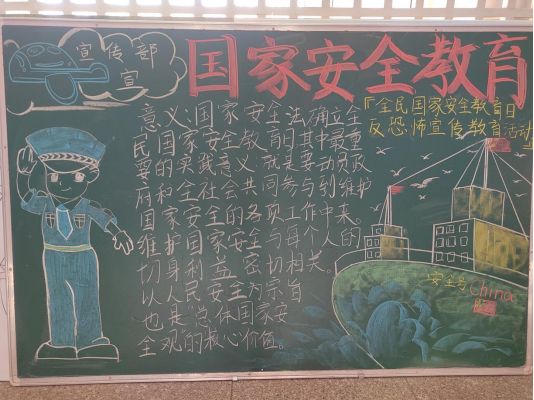 宣传部
宣
国家安全教育
『全民国家安全教育日
反恐怖宣传教育活动』
意义:国家安全法确立全
民国家安全教育日其中最重
要的实践意义就是要动员政
府和全社会共同参与到维护
国家安全的各项工作中来。
维护国家安全与每个人的
切身利益密切相关。
以人民安全为宗旨
也是总体国家安
全观的核心价值。
安全号
China